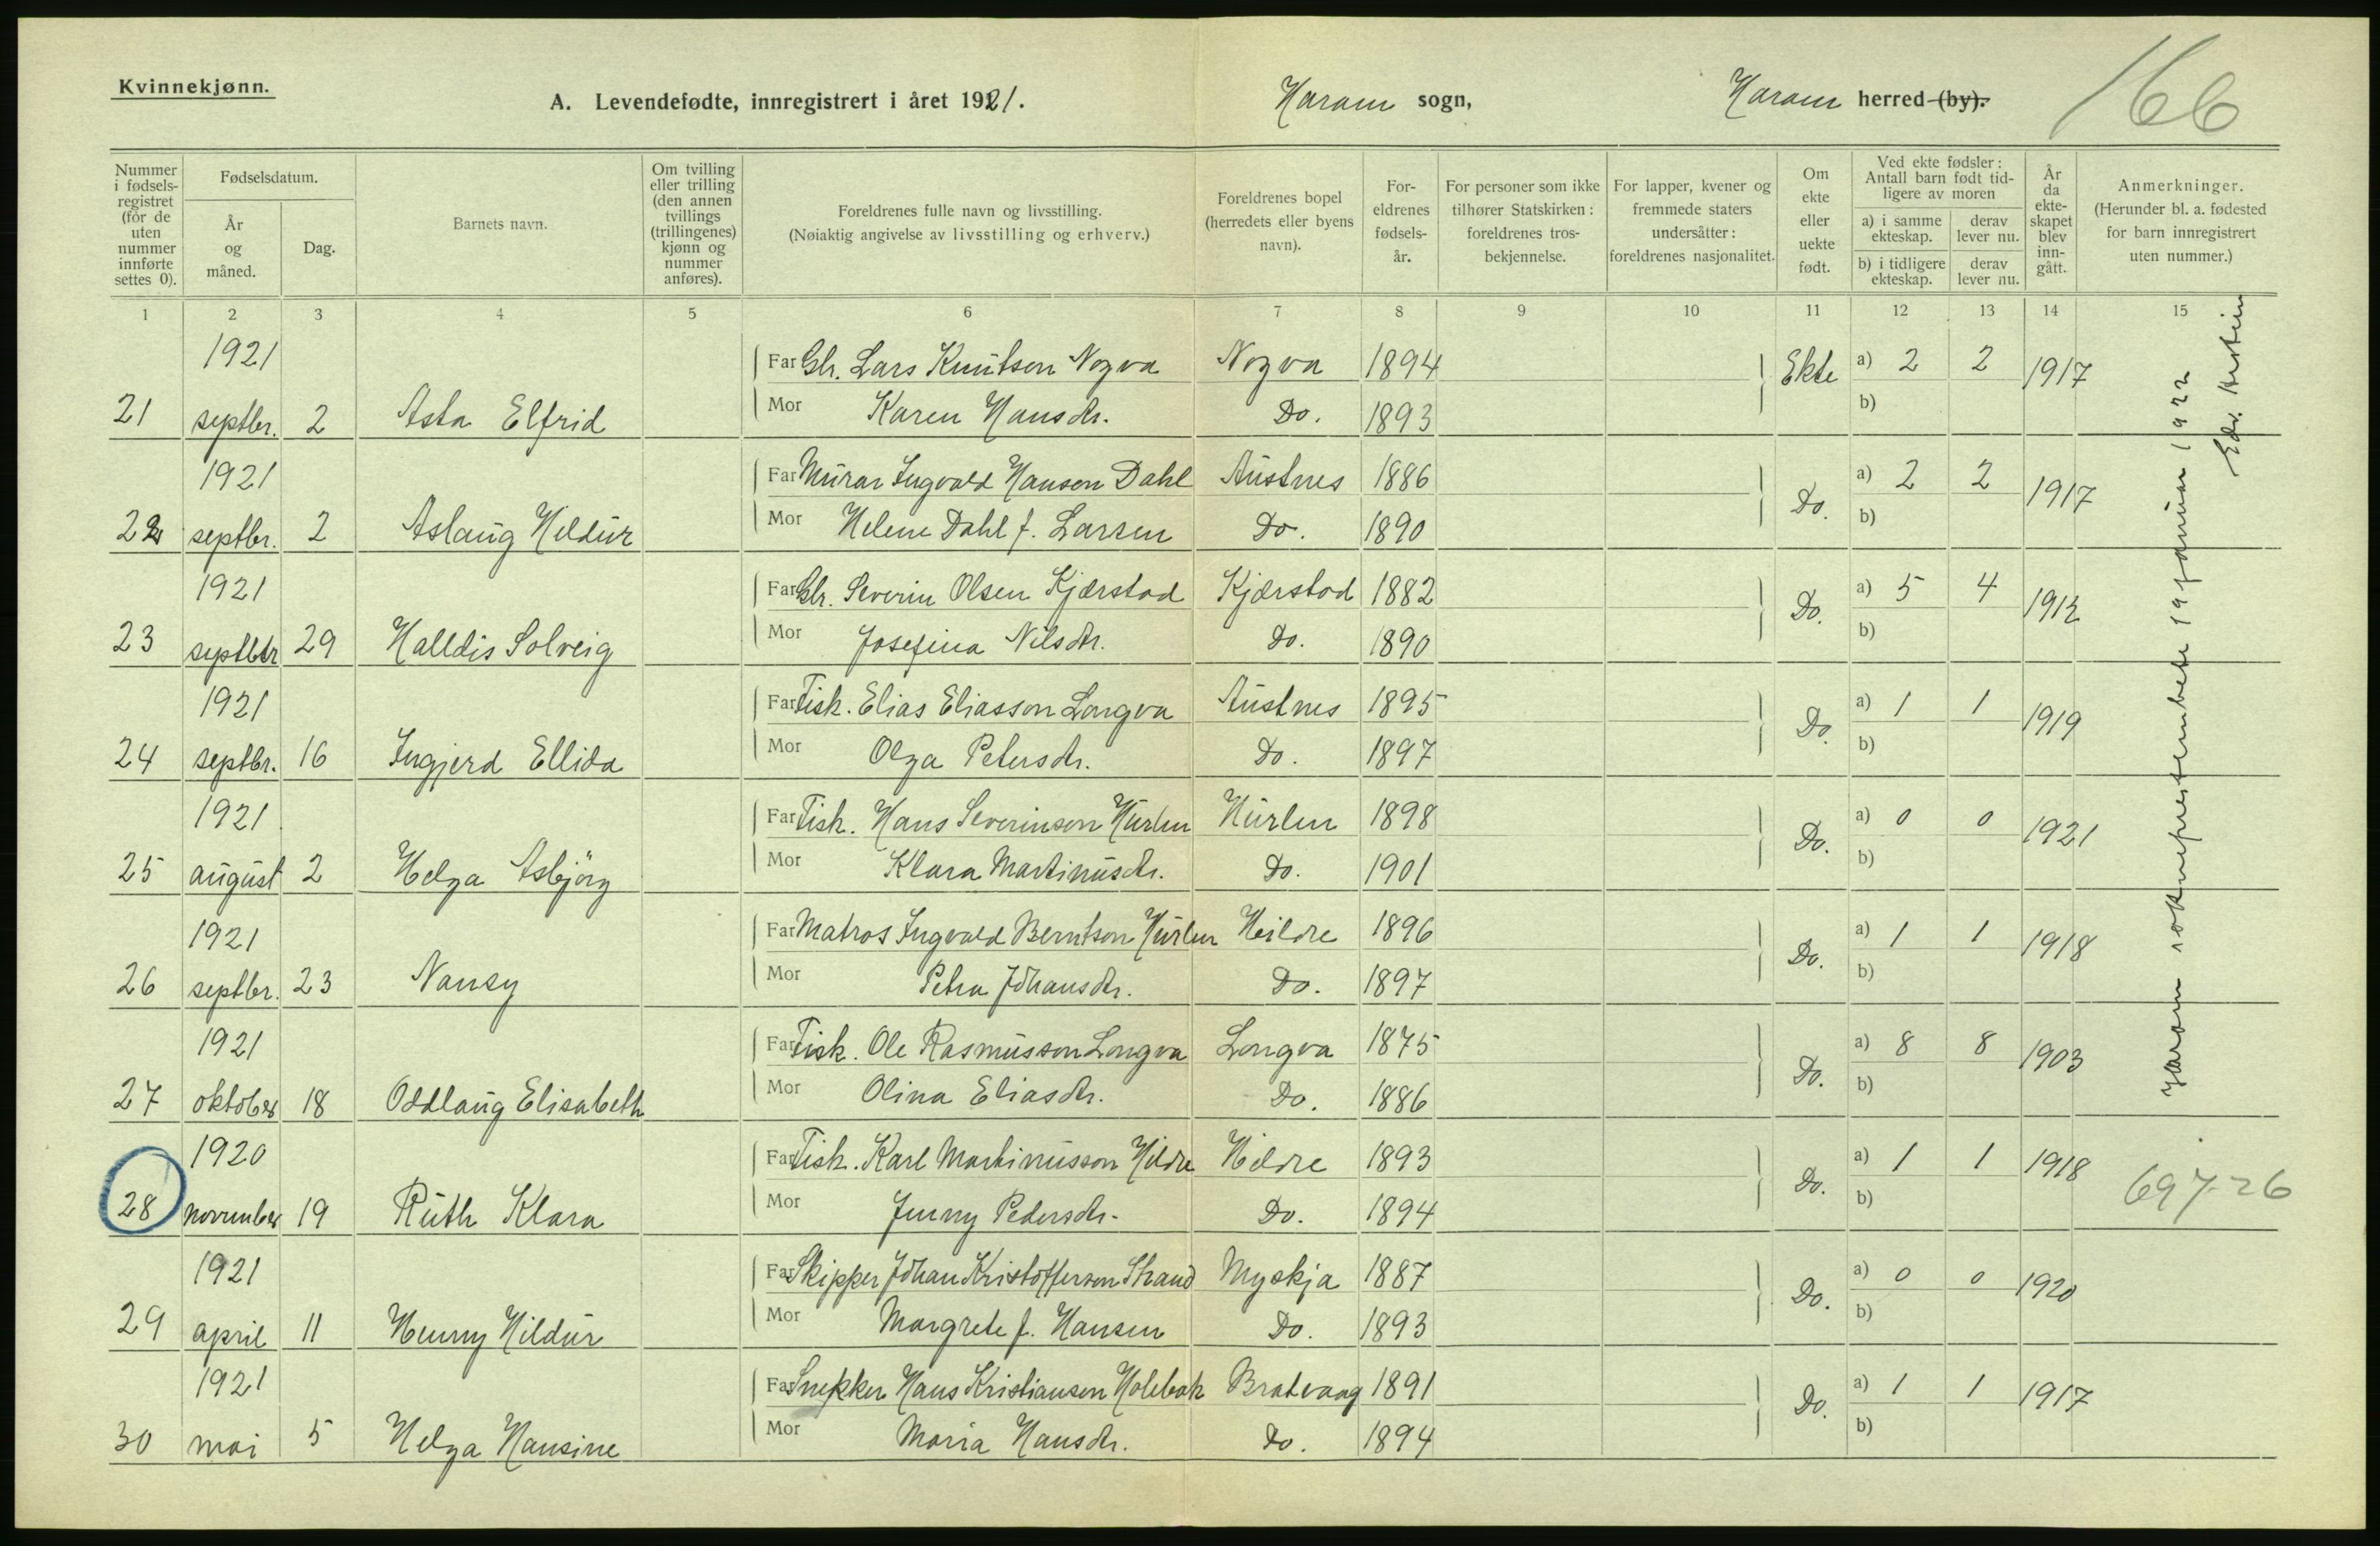 Kvinnekjønn.
A. Levendefødte, innregistrert i året 1921. Haram sogn, Haram herred (by). 166
Nummer i fødsels-registret (for de uten nummer innførte settes 0).
Fødselsdatum.
År og måned.
Dag.
Barnets navn.
Om tvilling eller trilling (den annen tvillings (trillingenes) kjønn og nummer anføres).
Foreldrenes fulle navn og livsstilling.
(Nøiaktig angivelse av livsstilling og erhverv.)
Foreldrenes bopel (herredets eller byens navn).
For-eldrenes fødsels-år.
For personer som ikke tilhører Statskirken: foreldrenes tros-bekjennelse.
For lapper, kvener og fremmede staters undersåtter: foreldrenes nasjonalitet.
Om ekte eller uekte født.
Ved ekte fødsler: Antall barn født tid-ligere av moren
a) i samme ekteskap. derav lever nu.
b) i tidligere ekteskap. derav lever nu.
År da ekte-skapet blev inn-gått.
Anmerkninger.
(Herunder bl. a. fødested for barn innregistrert uten nummer.)
1 2 3 4 5 6 7 8 9 10 11 12 13 14 15
1921 Far Gbr. Lars Knutson Nogva Nogva 1894 Ekte a) 2 2 1917
21 septbr. 2 Asta Elfrid Mor Karen Hansdtr. Do. 1893 b)
1921 Far Murar Ingvald Hanson Dahl Austnes 1886 Do. a) 2 2 1917
22 septbr. 2 Aslaug Hildur Mor Helene Dahl f. Larsen Do. 1890 b)
1921 Far Gbr. Severin Olsen Kjærstad Kjærstad 1882 Do. a) 5 4 1912
23 septbr 29 Halldis Solveig Mor Josefina Nilsdtr. Do. 1890 b)
1921 Far Fisk. Elias Eliasson Longva Austnes 1895 Do. a) 1 1 1919
24 septbr. 16 Ingjerd Ellida Mor Olga Petersdtr. Do. 1897 b)
1921 Far Fisk. Hans Severinson Hurlen Hurlen 1898 Do. a) 0 0 1921
25 august 2 Helga Asbjörg Mor Klara Martinusdtr. Do. 1901 b)
1921 Far Matros Ingvald Berntson Hurlen Heildre 1896 Do. a) 1 1 1918
26 septbr. 23 Nansy Mor Petra Johansdtr. Do. 1897 b)
1921 Far Fisk. Ole Rasmusson Longva Longva 1875 Do. a) 8 8 1903
27 oktober 18 Oddlaug Elisabeth Mor Olina Eliasdtr. Do. 1886 b)
1920 Far Fisk. Karl Martinusson Hildre Hildre 1893 Do. a) 1 1 1918 697-26
28 november 19 Ruth Klara Mor Jenny Pedersdtr. Do. 1894 b)
1921 Far Skipper Johan Kristofferson Strand Myskja 1887 Do. a) 0 0 1920
29 april 11 Henny Hildur Mor Margrete f. Hansen Do. 1893 b)
1921 Far Snekker Hans Kristiansen Holebak Bratvaag 1891 Do. a) 1 1 1917
30 mai 5 Helga Hansine Mor Maria Hansdtr. Do. 1894 b)
Haram sokneprestembete 19 januar 1922
Edv.